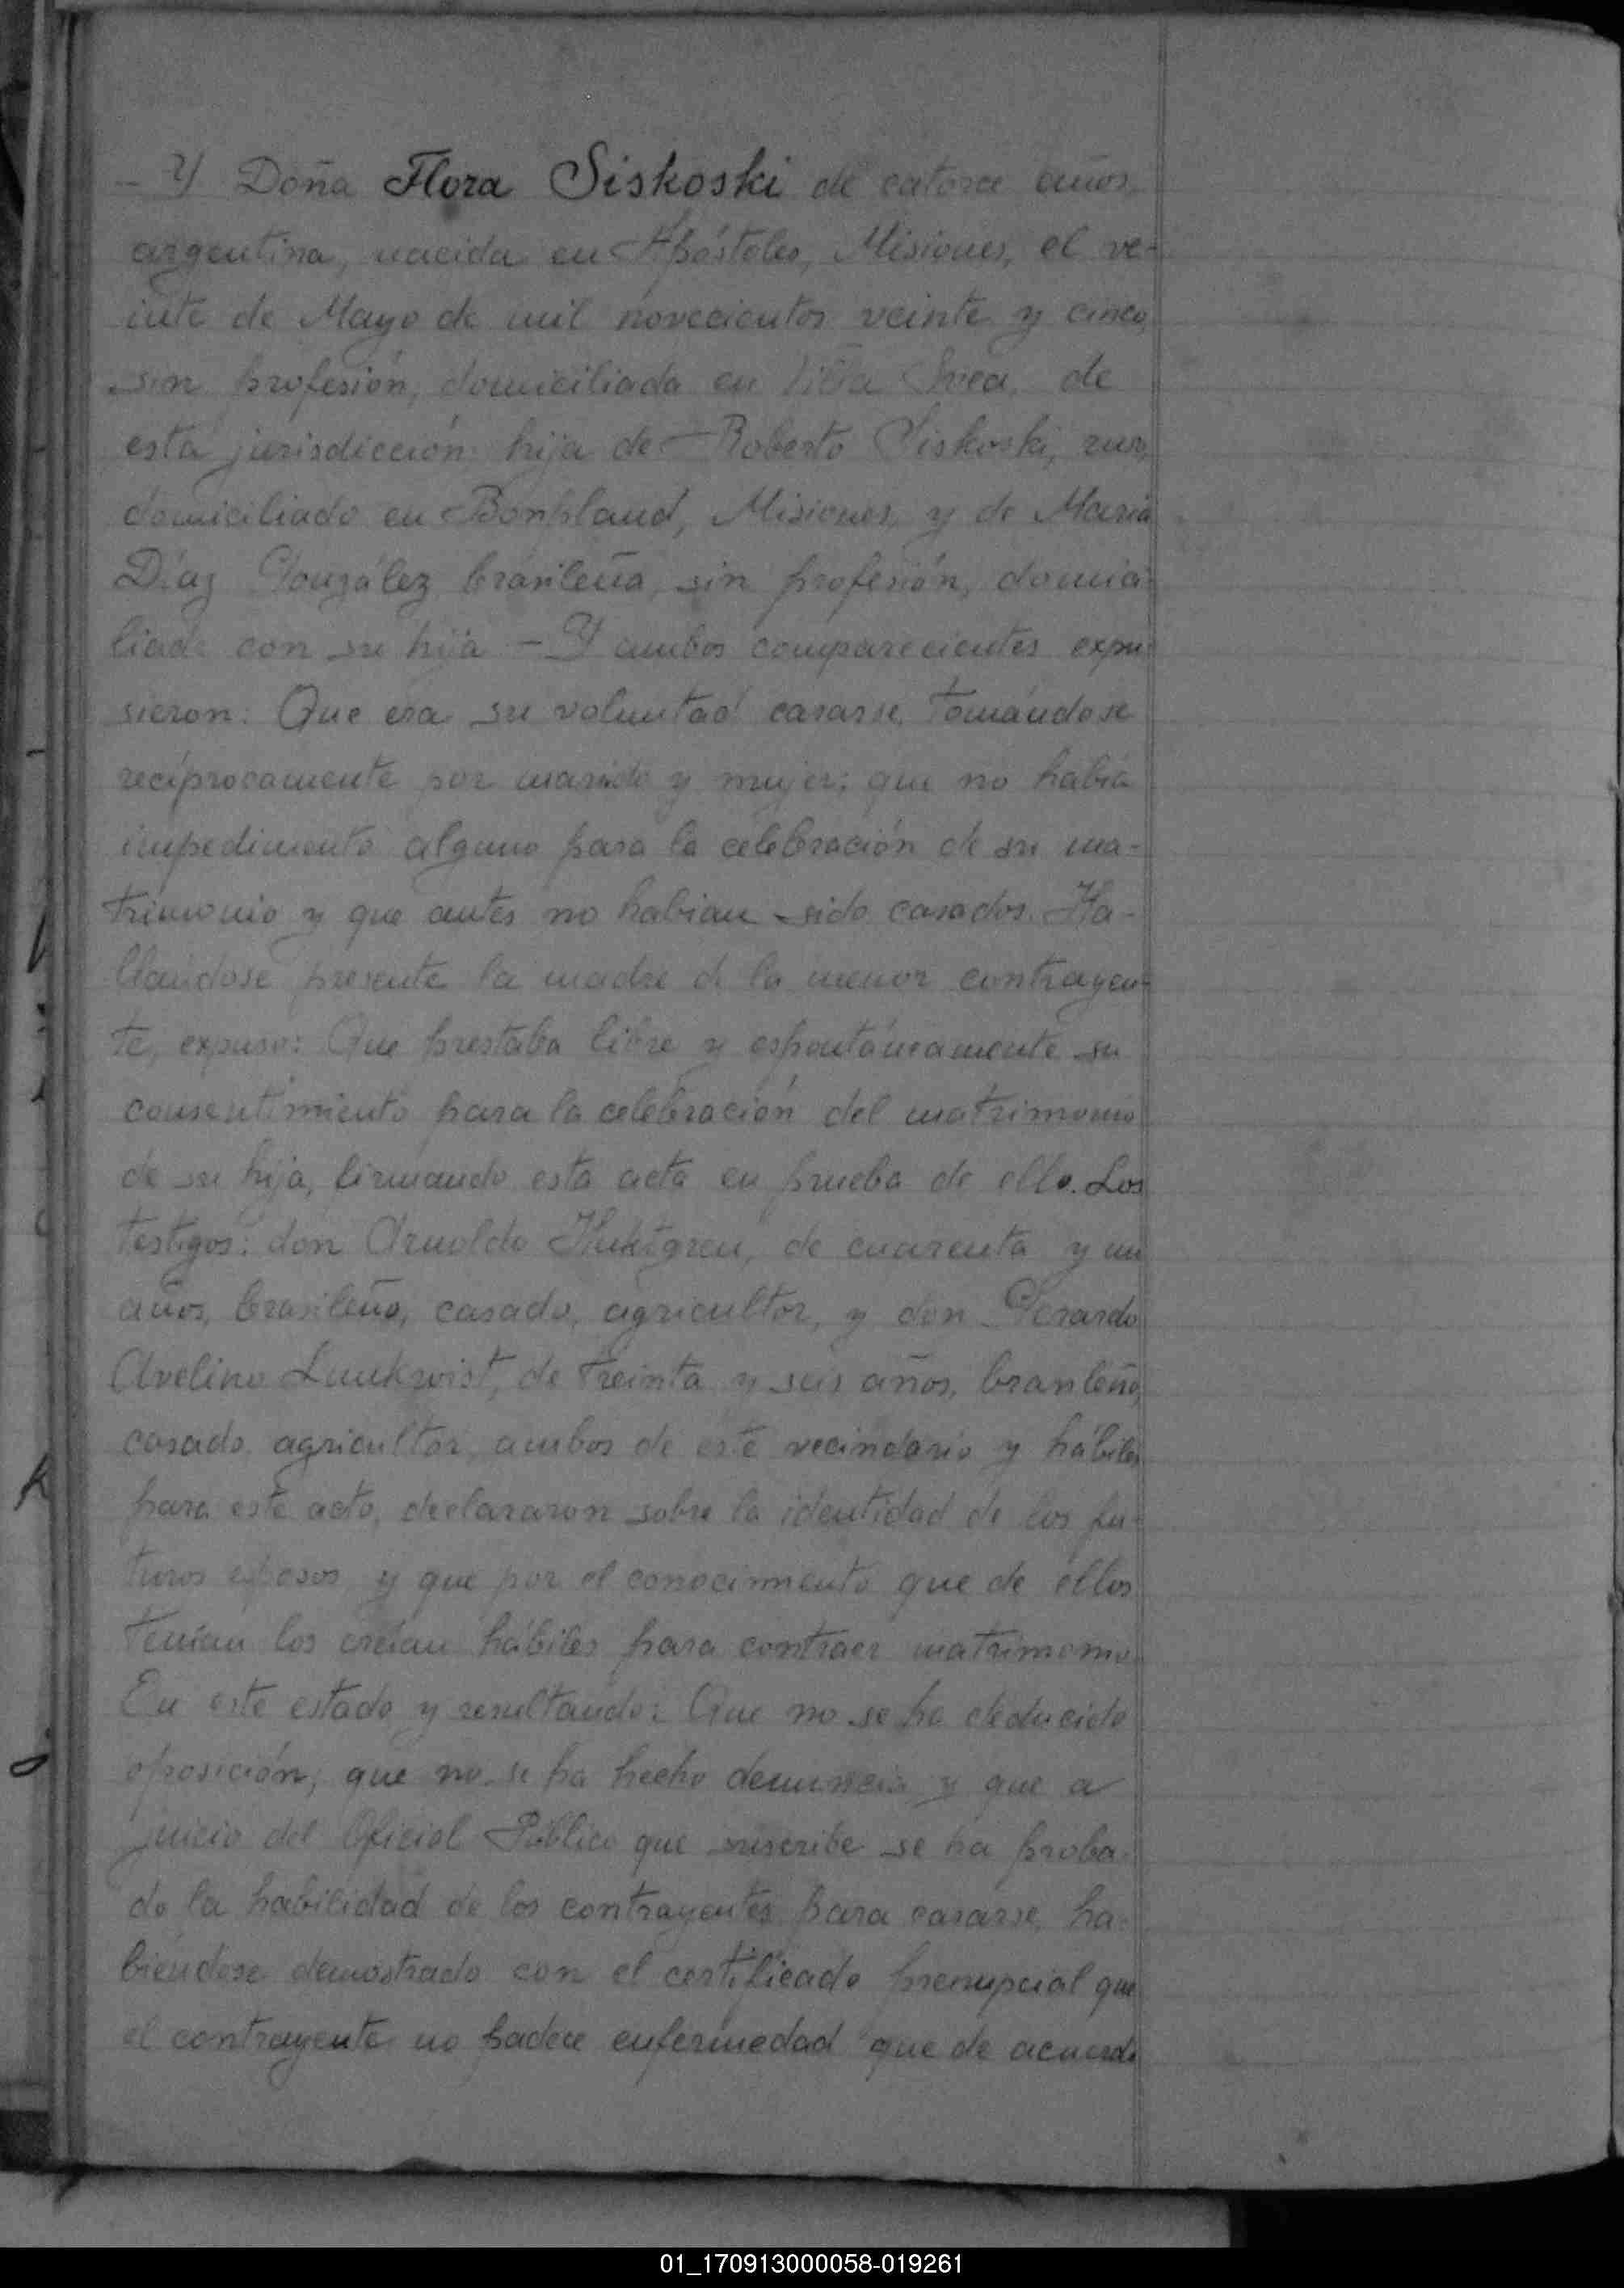 – Y Doña Flora Siskoski de catorce años,
argentina, nacida en Apóstoles, Misiones, el ve-
inte de Mayo de mil novecientos veinte y cinco,
sin profesión, domiciliada en Villa Svea, de
esta jurisdicción hija de Roberto Siskoski, ruso,
domiciliado en Bonpland, Misiones, y de María
Díaz González, brasileña, sin profesión, domici-
liada con su hija – Y ambos comparecientes expu-
sieron: Que era su voluntad casarse, tomándose
recíprocamente por marido y mujer; que no había
impedimento alguno para la celebración de su ma-
trimonio y que antes no habian sido casados. Ha-
llándose presente la madre de la menor contrayen-
te, expuso: Que prestaba libre y espontáneamente su
consentimiento para la celebración del matrimonio
de su hija, firmando esta acta en prueba de ello. Los
testigos: don Arnoldo Hultgren, de cuarenta y un
años, brasileño, casado, agricultor, y don Gerardo
Avelino Lunkvist, de treinta y seis años, brasileño,
casado, agricultor, ambos de este vecindario y hábiles
para este acto, declararon sobre la identidad de los fu-
turos esposos y que por el conocimiento que de ellos
tenían los creían hábiles para contraer matrimonio
En este estado y resultando: Que no se ha deducido
oposición; que no se ha hecho denuncia y que a
juicio del Oficial Público que suscribe se ha proba-
do la habilidad de los contrayentes para casarse, ha-
biéndose demostrado con el certificado prenupcial que
el contrayente no padece enfermedad que de acuerdo
01_170913000058-019261